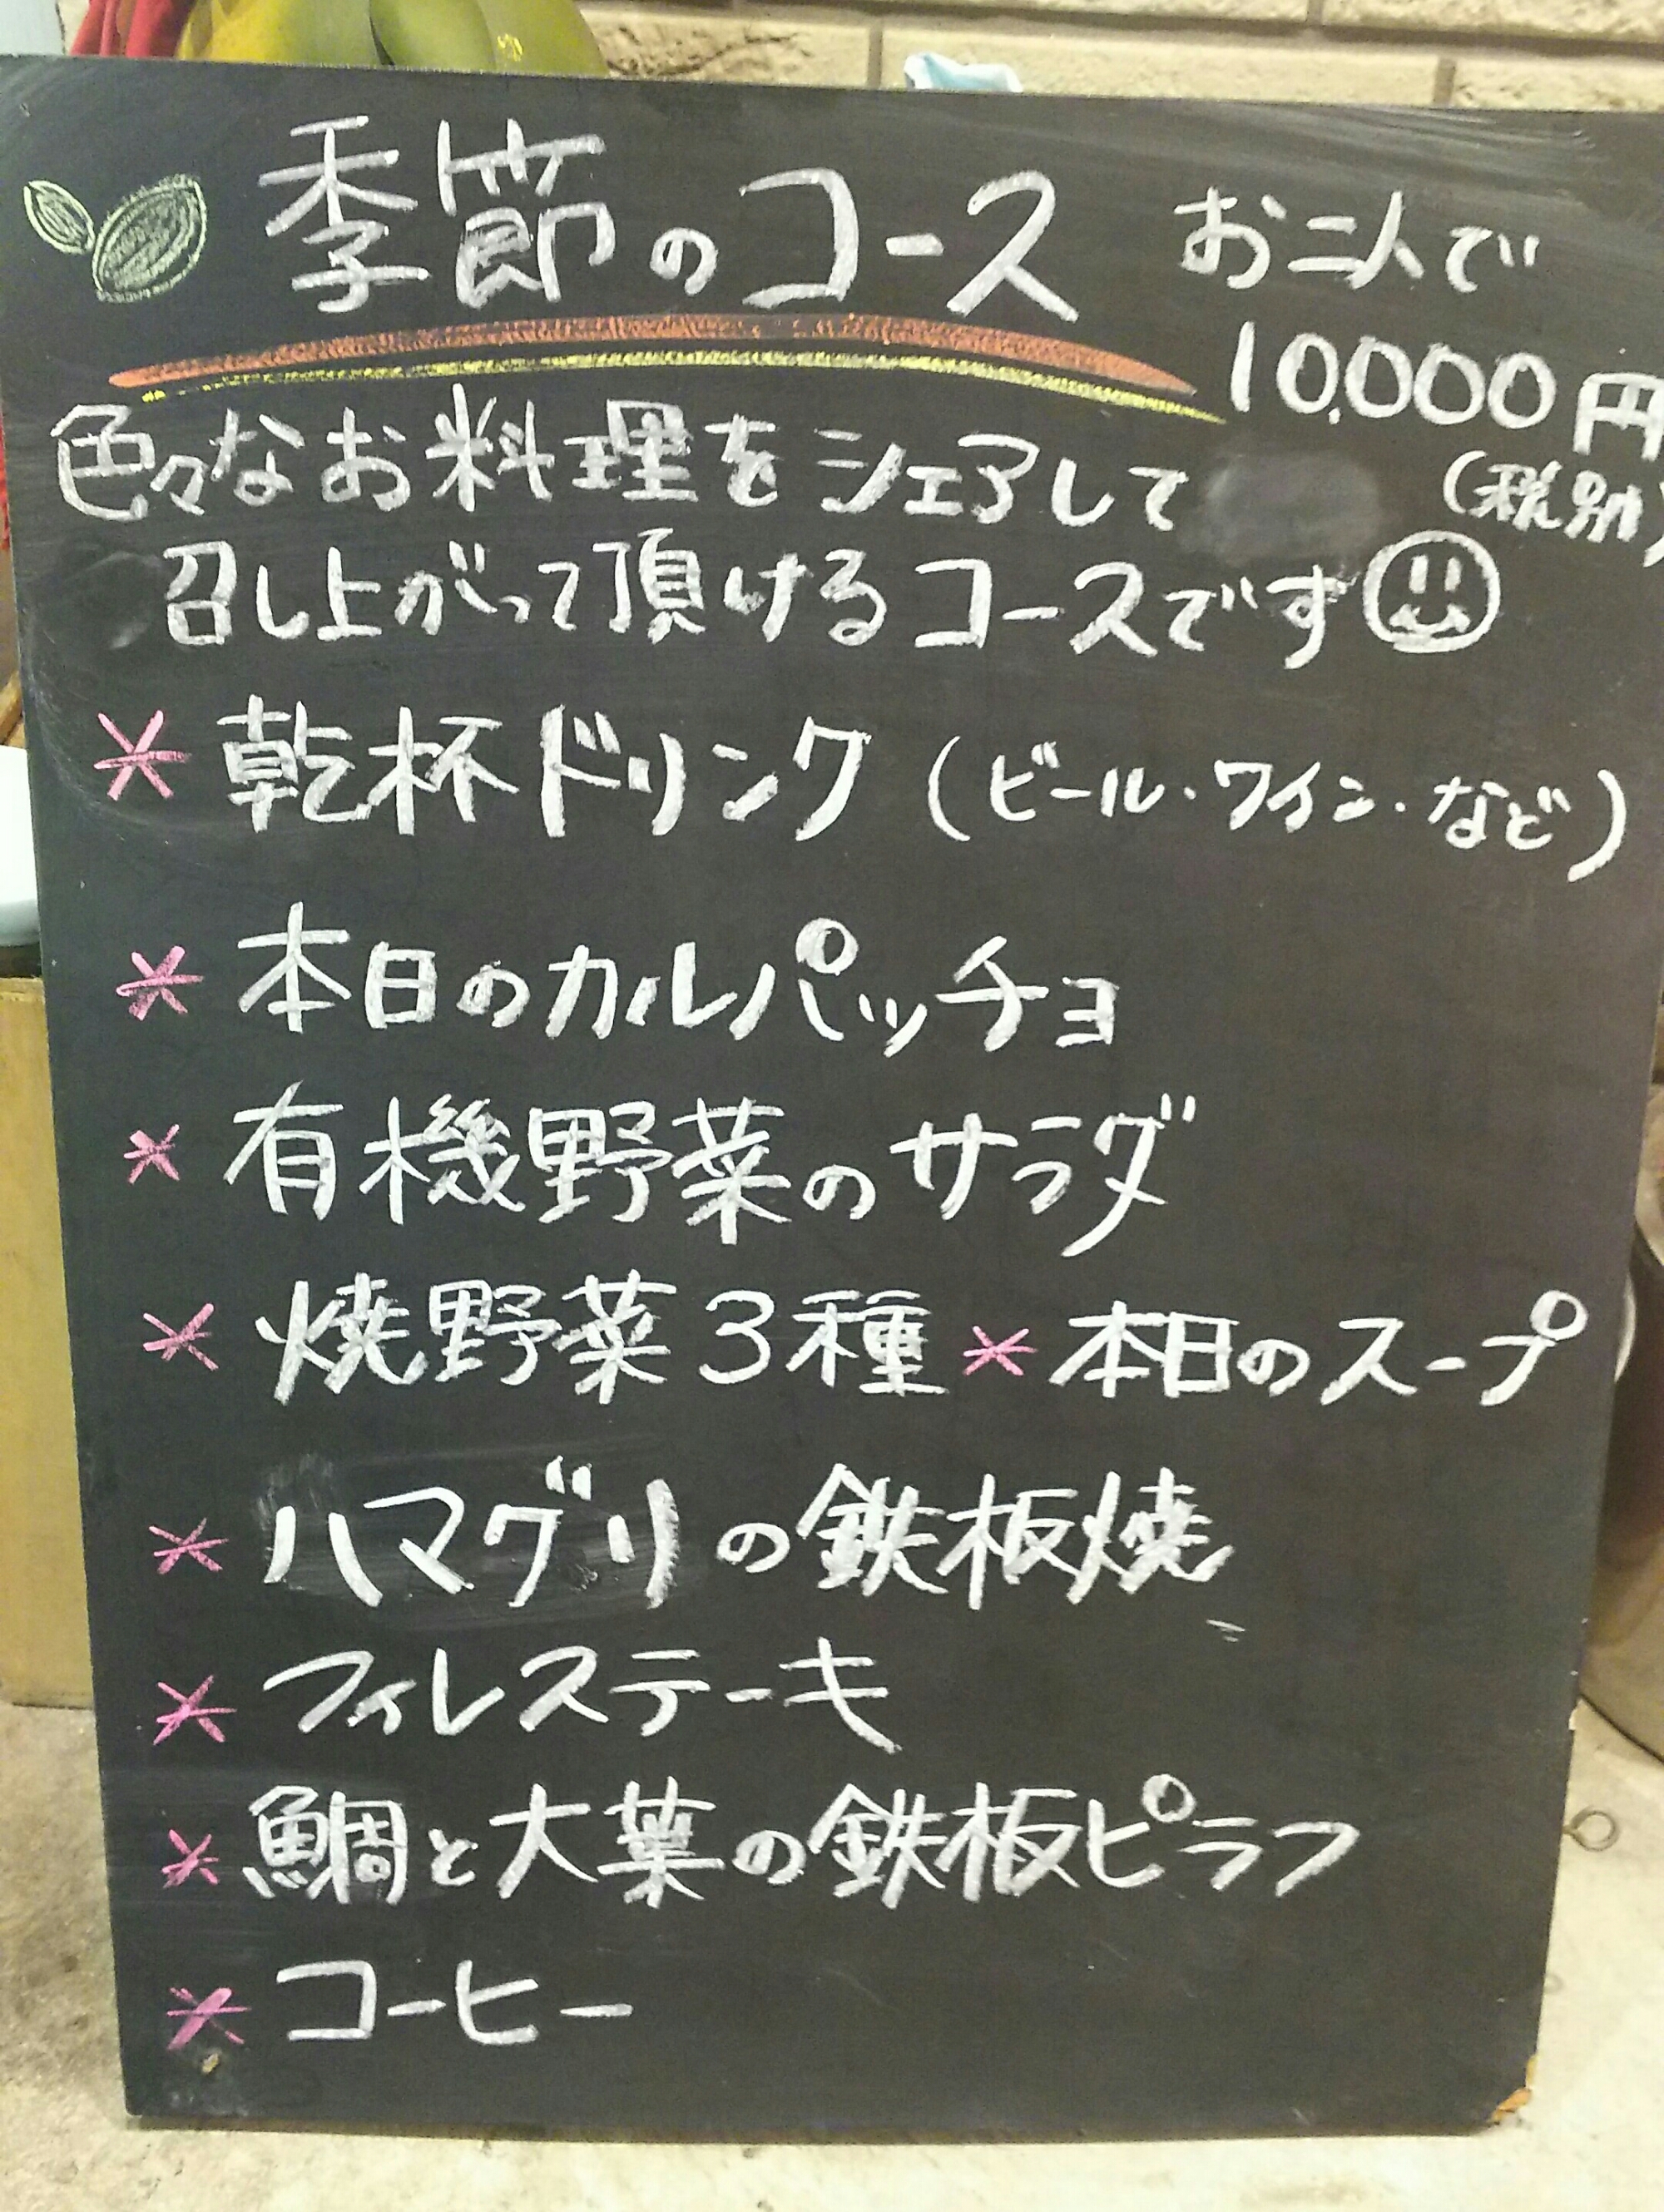 季節のコース お二人で
10,000円
(税別)
色々なお料理をシェアして
召し上がって頂けるコースです
* 乾杯ドリンク (ビール・ワイン・など)
* 本日のカルパッチョ
* 有機野菜のサラダ
* 焼野菜3種 * 本日のスープ
* ハマグリの鉄板焼
* フィレステーキ
* 鯛と大葉の鉄板ピラフ
* コーヒー